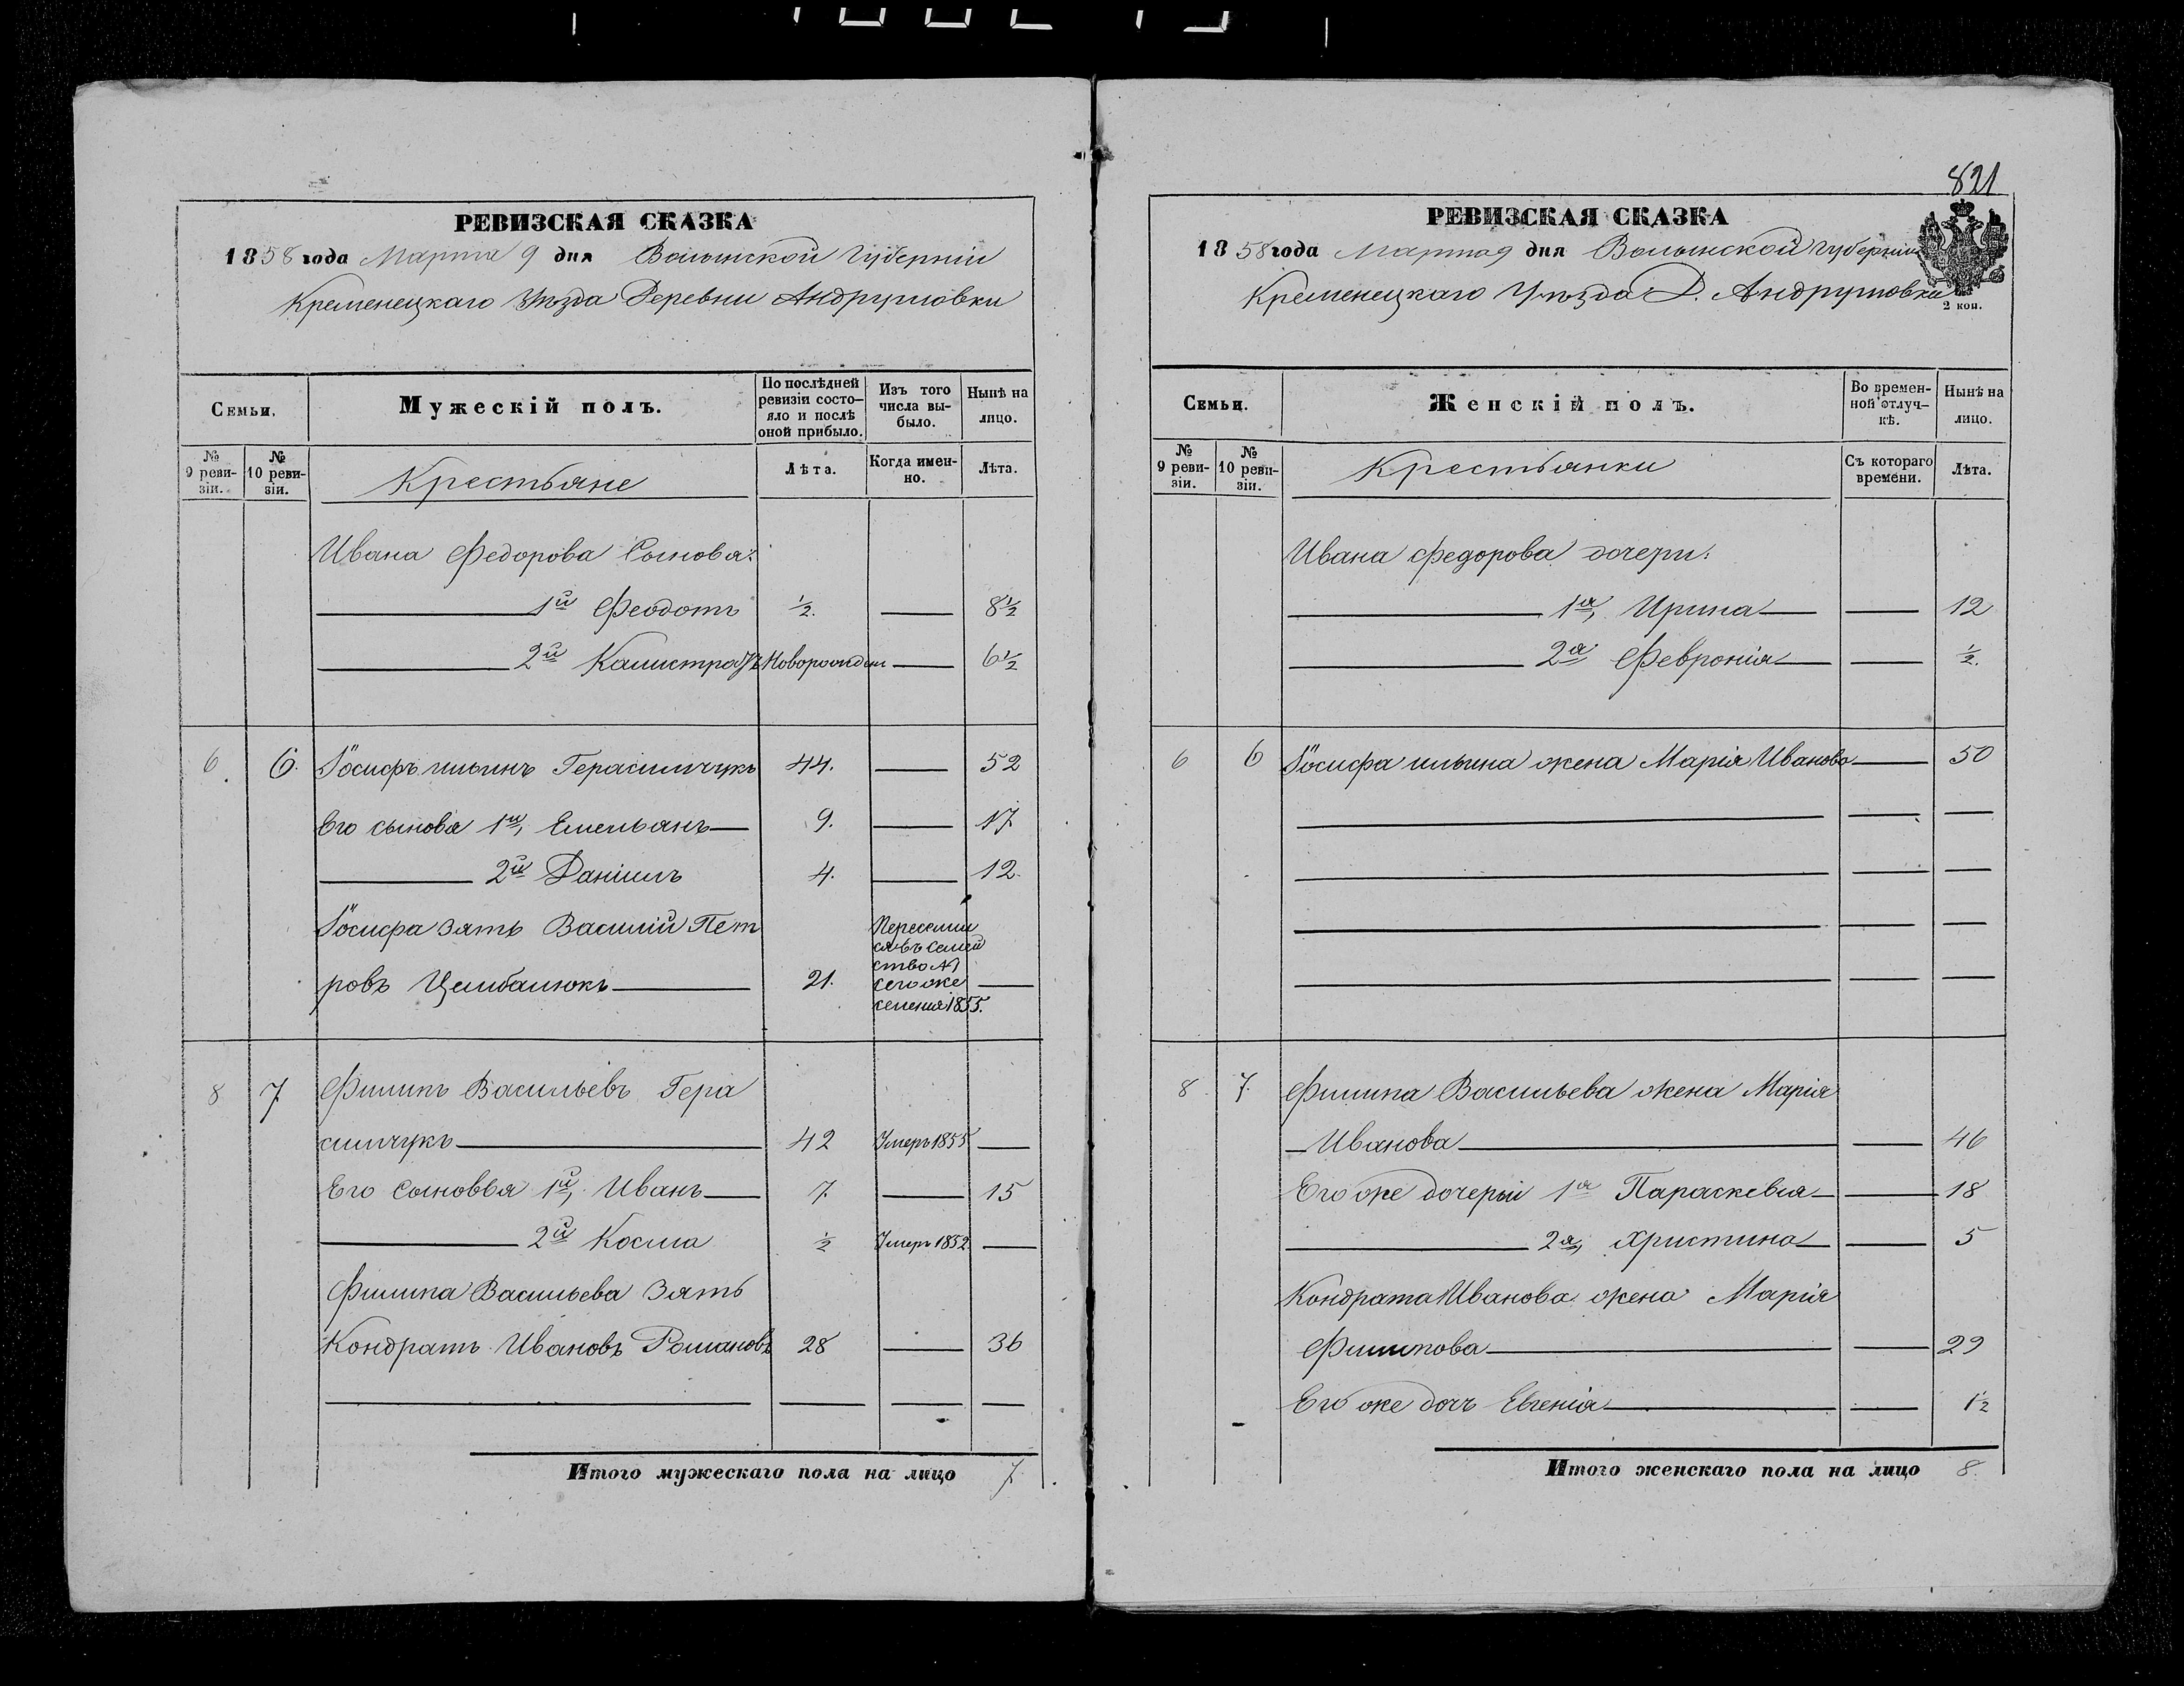 РЕВИЗСКАЯ СКАЗКА
1858 года Марта 9 дня Волынской Губерніи
Кременецкаго Уѣзда Деревни Андрушовки
Семьи.
Мужескій полъ.
По послѣдней ревизіи состояло и послѣ оной прибыло.
Изъ того числа выбыло.
Нынѣ на лицо.
№ 9 ревизіи.
№ 10 ревизіи.
Крестьяне
Лѣта.
Когда именно.
Лѣта.
Ивана Федорова Сыновя:
1й Феодотъ ½. 8½
2й Калистратъ Новорожден 6½
6. 6. Іосифъ ильинъ Герасимчукъ 44. 52
Его сыновя 1й, Емельянъ 9. 17
2й Даніилъ 4. 12.
Іосифа зять Василій Пет
ровъ Цимбалюкъ 21.
Переселил
ся въ семей
ство №
сегоже
селения 1855.
8 7 Филипъ Васильевъ Гера
симчукъ 42 Умеръ 1855
Его Сыновья 1й, Иванъ 7. 15
2й Косма ½ Умеръ 1852
Филипа Васильева Зять
Кондратъ Ивановъ Романовъ 28 36
Итого мужескаго пола на лицо 7
821
РЕВИЗСКАЯ СКАЗКА
1858 года Марта 9 дня Волынской Губерніи
Кременецкаго Уѣзда Д. Андрушовки
2 коп.
Семьи.
Женскій полъ.
Во временной отлучкѣ.
Нынѣ на лицо.
№ 9 ревизіи.
№ 10 ревизіи.
Крестьянки
Съ котораго времени.
Лѣта.
Ивана Федорова дочери:
1я, Ирина 12
2я Февронія ½.
6 6 Іосифа ильина жена Марія Иванова 50
8 7. Филипа Васильева жена Марія
Иванова 46
Его же дочерьи 1я Параскевия 18
2я, Христина 5
Кондрата Иванова жена Марія
Филипова 29
Его же дочь Евгенія 1½
Итого женскаго пола на лицо 8.